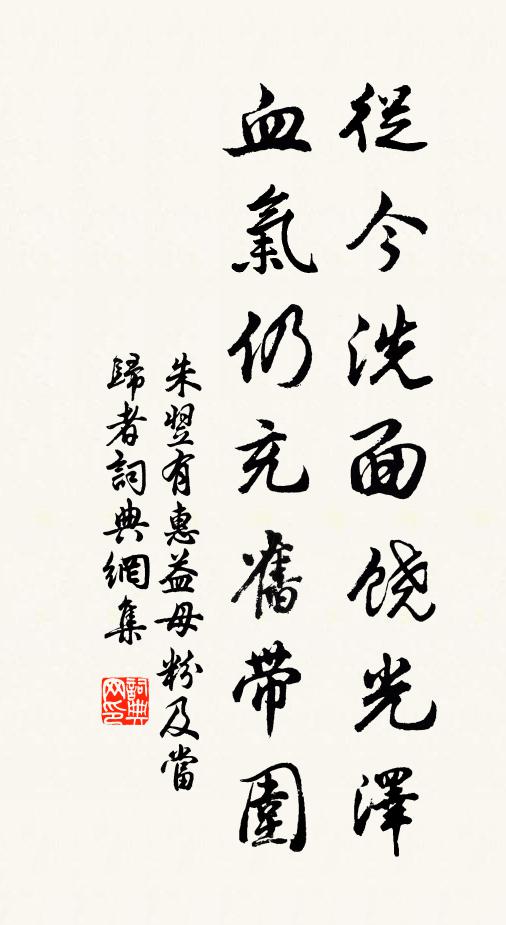 從今洗面饶光澤
血氣仍充舊帶圍
朱翌有惠益母粉及當
歸者詞典網集
詞典
网印